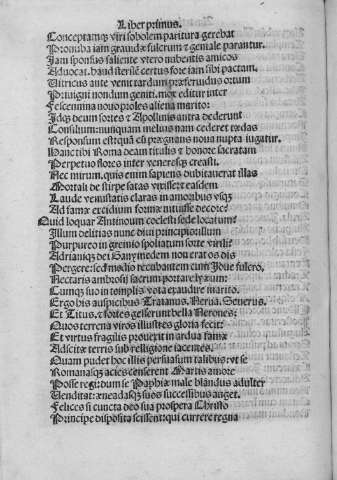 Liber primus.
Conceptamqʒ viri sobolem paritura gerebat
Pronuba iam gravidæ fulcrum & geniale parantur.
Iam sponsus saliente vtero nubentis amicos
Aduocat. haud sterilē certus fore iam sibi pactam.
Vitricus ante venit tardum præferuidus ortum
Priuigni nondum geniti. mox editur inter
Fescennina nouo proles aliena marito:
Idqʒ deum sortes & Apollinis antra dederunt
Consilium: nunquam melius nam cedere tædas
Responsum est quā cū prægnans noua nupta iugatur.
Hanc tibi Roma deam titulis & honore sacratam
Perpetuo flores inter veneresqʒ creasti.
Nec mirum. quis enim sapiens dubitauerat illas
Mortali de stirpe satas vixisse: easdem
Laude venustatis claras in amoribus vsqʒ
Ad famæ excidium formæ nituisse decore?
Quid loquar Antinoum coelesti sede locatum?
Illum delitias nunc diui principis: illum
Purpureo in gremio spoliatum sorte virili:
Adrianiqʒ dei Ganymedem non erat os dis
Pergere: sed medio recubantem cum Ioue fulcro,
Nectaris ambrosii sacrum portare lyæum:
Cumqʒ suo in templis vota exaudire marito.
Ergo his auspicibus Traianus. Nerua. Seuerus.
Et Titus. & fortes gesserunt bella Nerones:
Quos terrena viros illustres gloria fecit:
Et virtus fragilis prouexit in ardua famæ
Adscitæ terris sub relligione iacentes.
Quam pudet hoc illis persuasum talibus: vt se
Romanasqʒ acies censerent Martis amore
Posse regi: dum se Paphiæ male blandus adulter
Venditat: æneadasqʒ suos successibus auget.
Felices si cuncta deo sua prospera Christo
Principe disposita scissent: qui currere regna